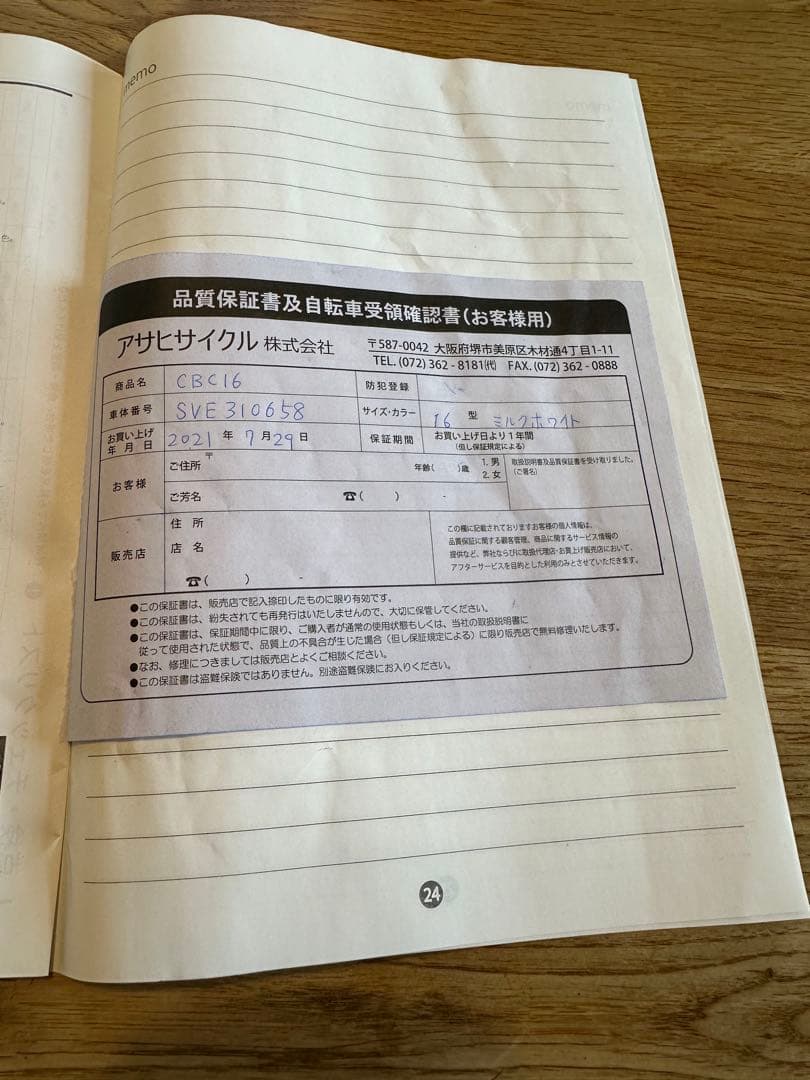 memo
品質保証書及自転車受領確認書(お客様用)
アサヒサイクル 株式会社
〒587-0042 大阪府堺市美原区木材通4丁目1-11
TEL.(072)362-8181㈹ FAX.(072)362-0888
商品名 CBC16 防犯登録
車体番号 SVE310658 サイズ・カラー 16 型 ミルクホワイト
お買い上げ年月日 2021 年 7 月 29 日 保証期間 お買い上げ日より1年間
(但し保証規定による)
お客様 ご住所 〒 年齢( )歳 1. 男 2. 女
取扱説明書及品質保証書を受け取りました。
(ご署名)
ご芳名 ☎( ) -
販売店 住所
店名
☎( ) -
この欄に記載されておりますお客様の個人情報は、
品質保証に関する顧客管理、商品に関するサービス情報の
提供など、弊社ならびに取扱代理店・お買上げ販売店において、
アフターサービスを目的とした利用のみとさせていただきます。
●この保証書は、販売店で記入捺印したものに限り有効です。
●この保証書は、紛失されても再発行はいたしませんので、大切に保管してください。
●この保証書は、保証期間中に限り、ご購入者が通常の使用状態もしくは、当社の取扱説明書に
従って使用された状態で、品質上の不具合が生じた場合(但し保証規定による)に限り販売店で無料修理いたします。
●なお、修理につきましては販売店とよくご相談ください。
●この保証書は盗難保険ではありません。別途盗難保険にお入りください。
24